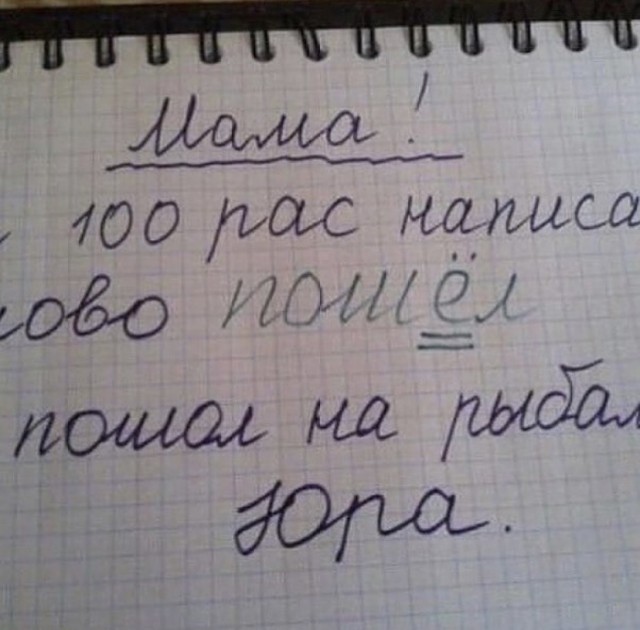 Мама!
100 рас написа
лово пошёл
пошол на рыбал
Юра.